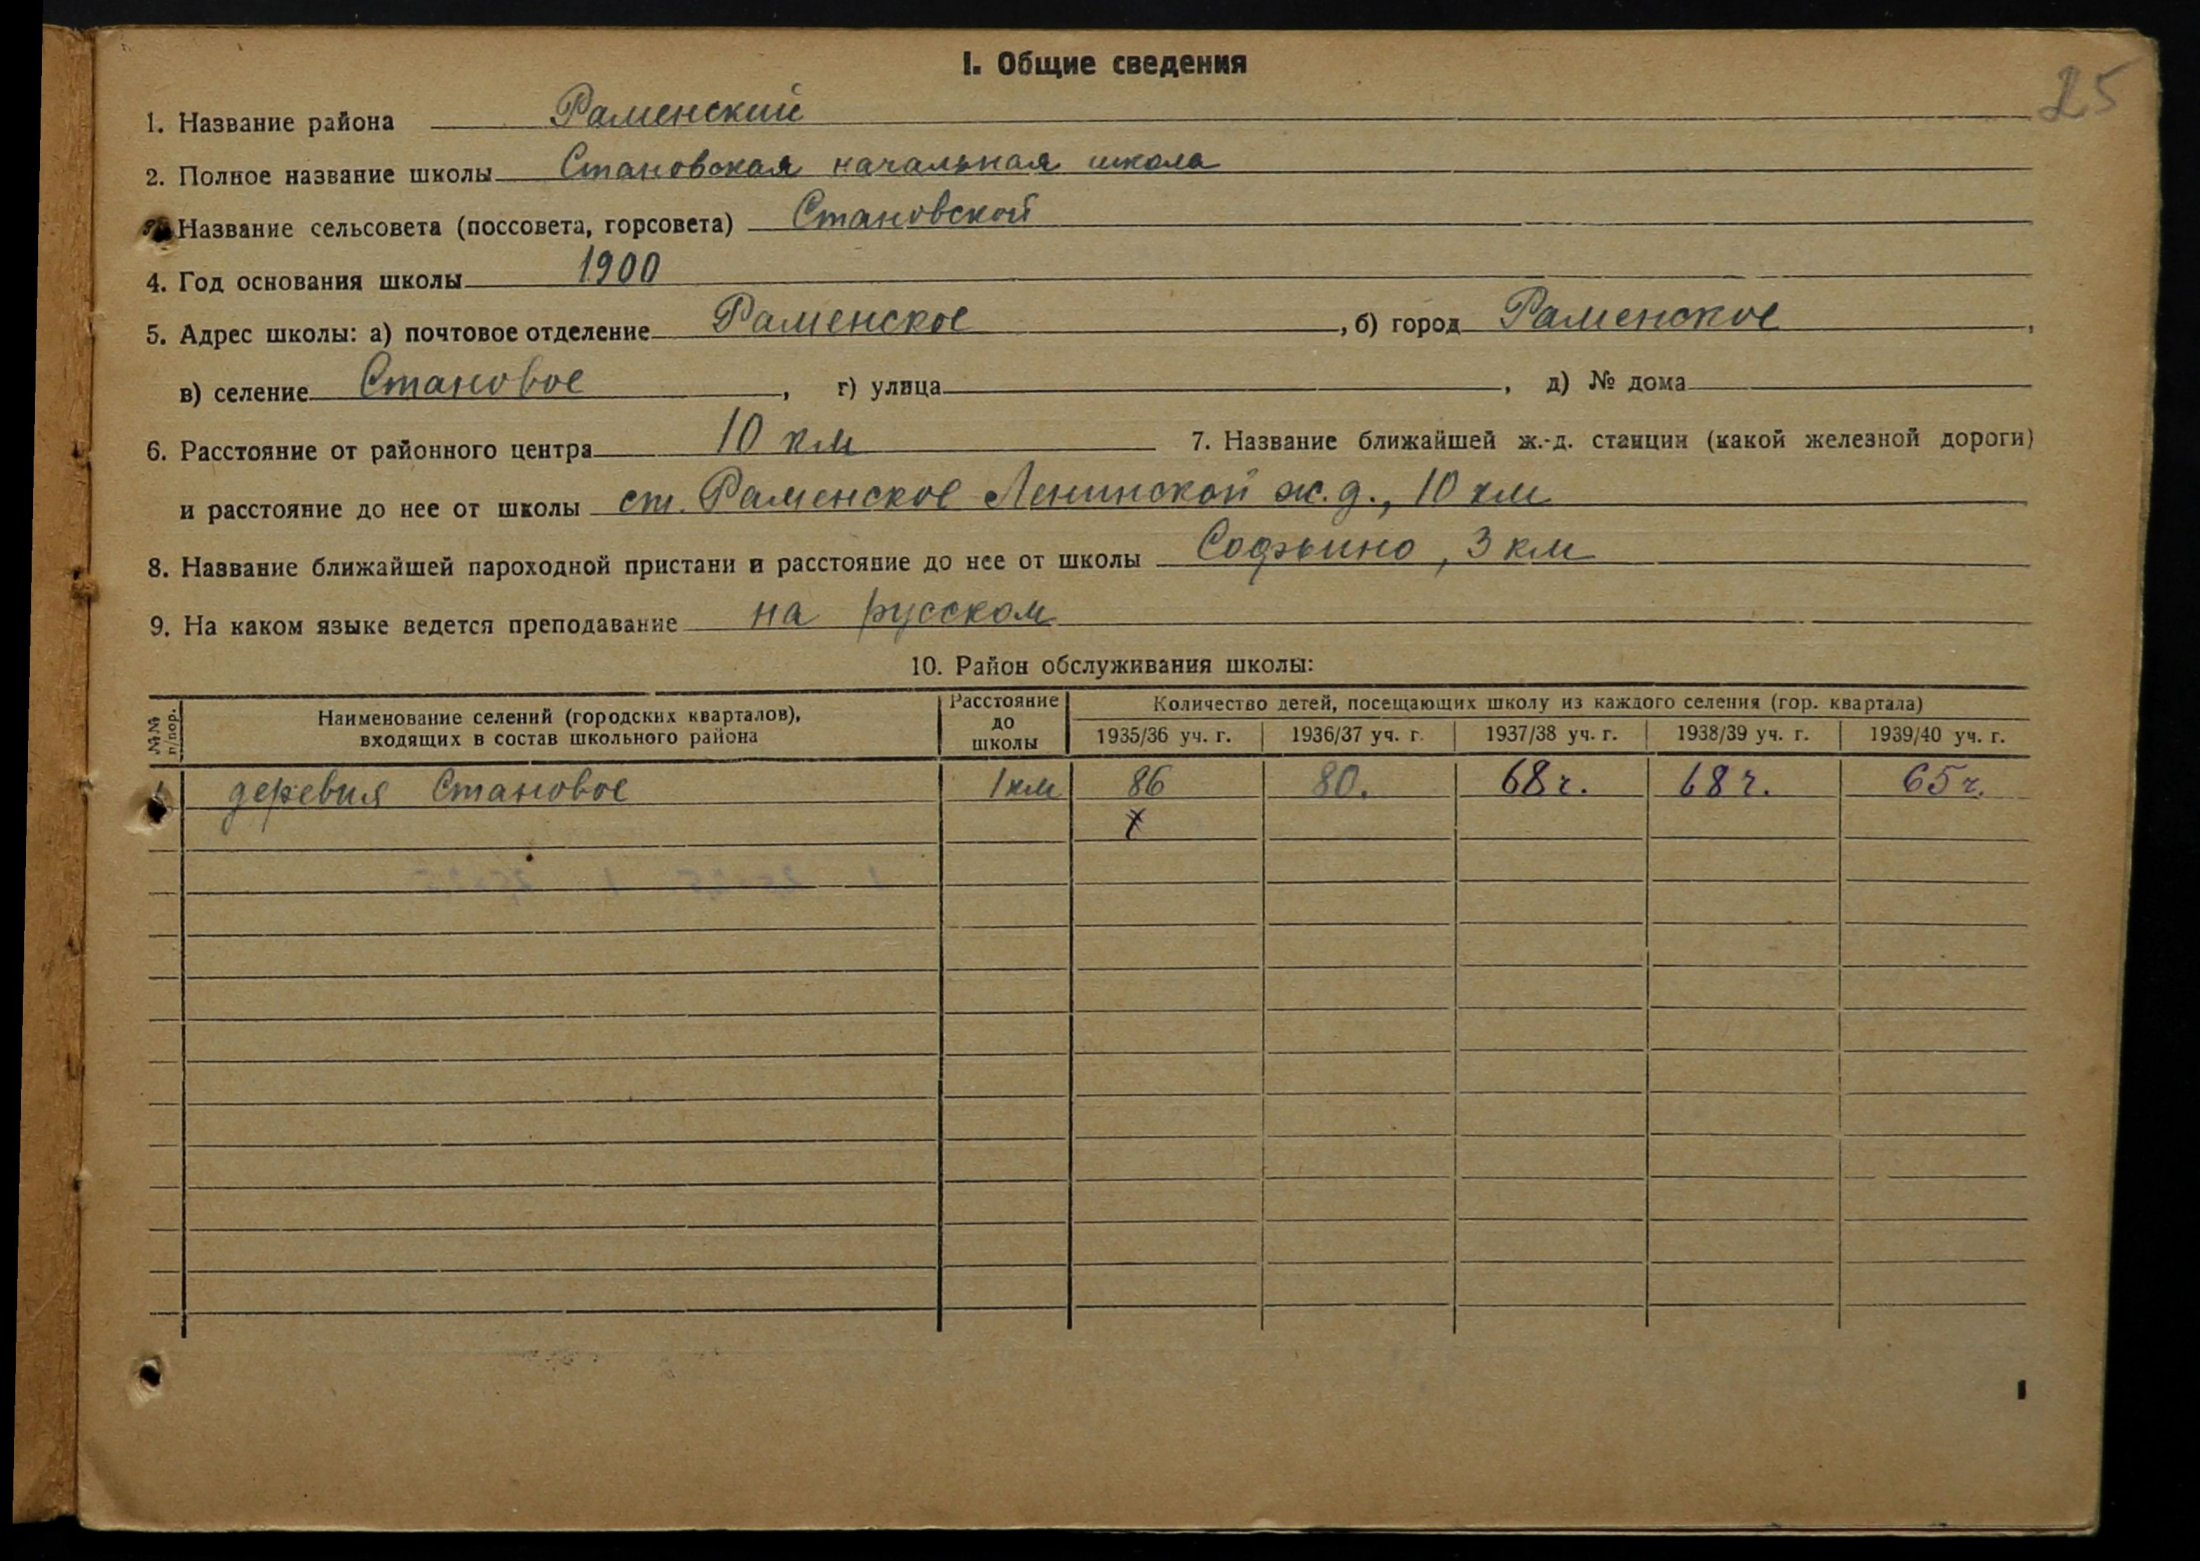 I. Общие сведения
25
1. Название района Раменский
2. Полное название школы Становская начальная школа
Название сельсовета (поссовета, горсовета) Становской
4. Год основания школы 1900
5. Адрес школы: а) почтовое отделение Раменское, б) город Раменское,
в) селение Становое, г) улица, д) № дома
6. Расстояние от районного центра 10 км 7. Название ближайшей ж.-д. станции (какой железной дороги)
и расстояние до нее от школы ст. Раменское Ленинской ж.д., 10 км
8. Название ближайшей пароходной пристани и расстояние до нее от школы Софьино, 3 км
9. На каком языке ведется преподавание на русском
10. Район обслуживания школы:
№№ п/пор. Наименование селений (городских кварталов), входящих в состав школьного района Расстояние до школы Количество детей, посещающих школу из каждого селения (гор. квартала)
1935/36 уч. г. 1936/37 уч. г. 1937/38 уч. г. 1938/39 уч. г. 1939/40 уч. г.
деревня Становое 1 км 86 80. 68 ч. 68 ч. 65 ч.
1